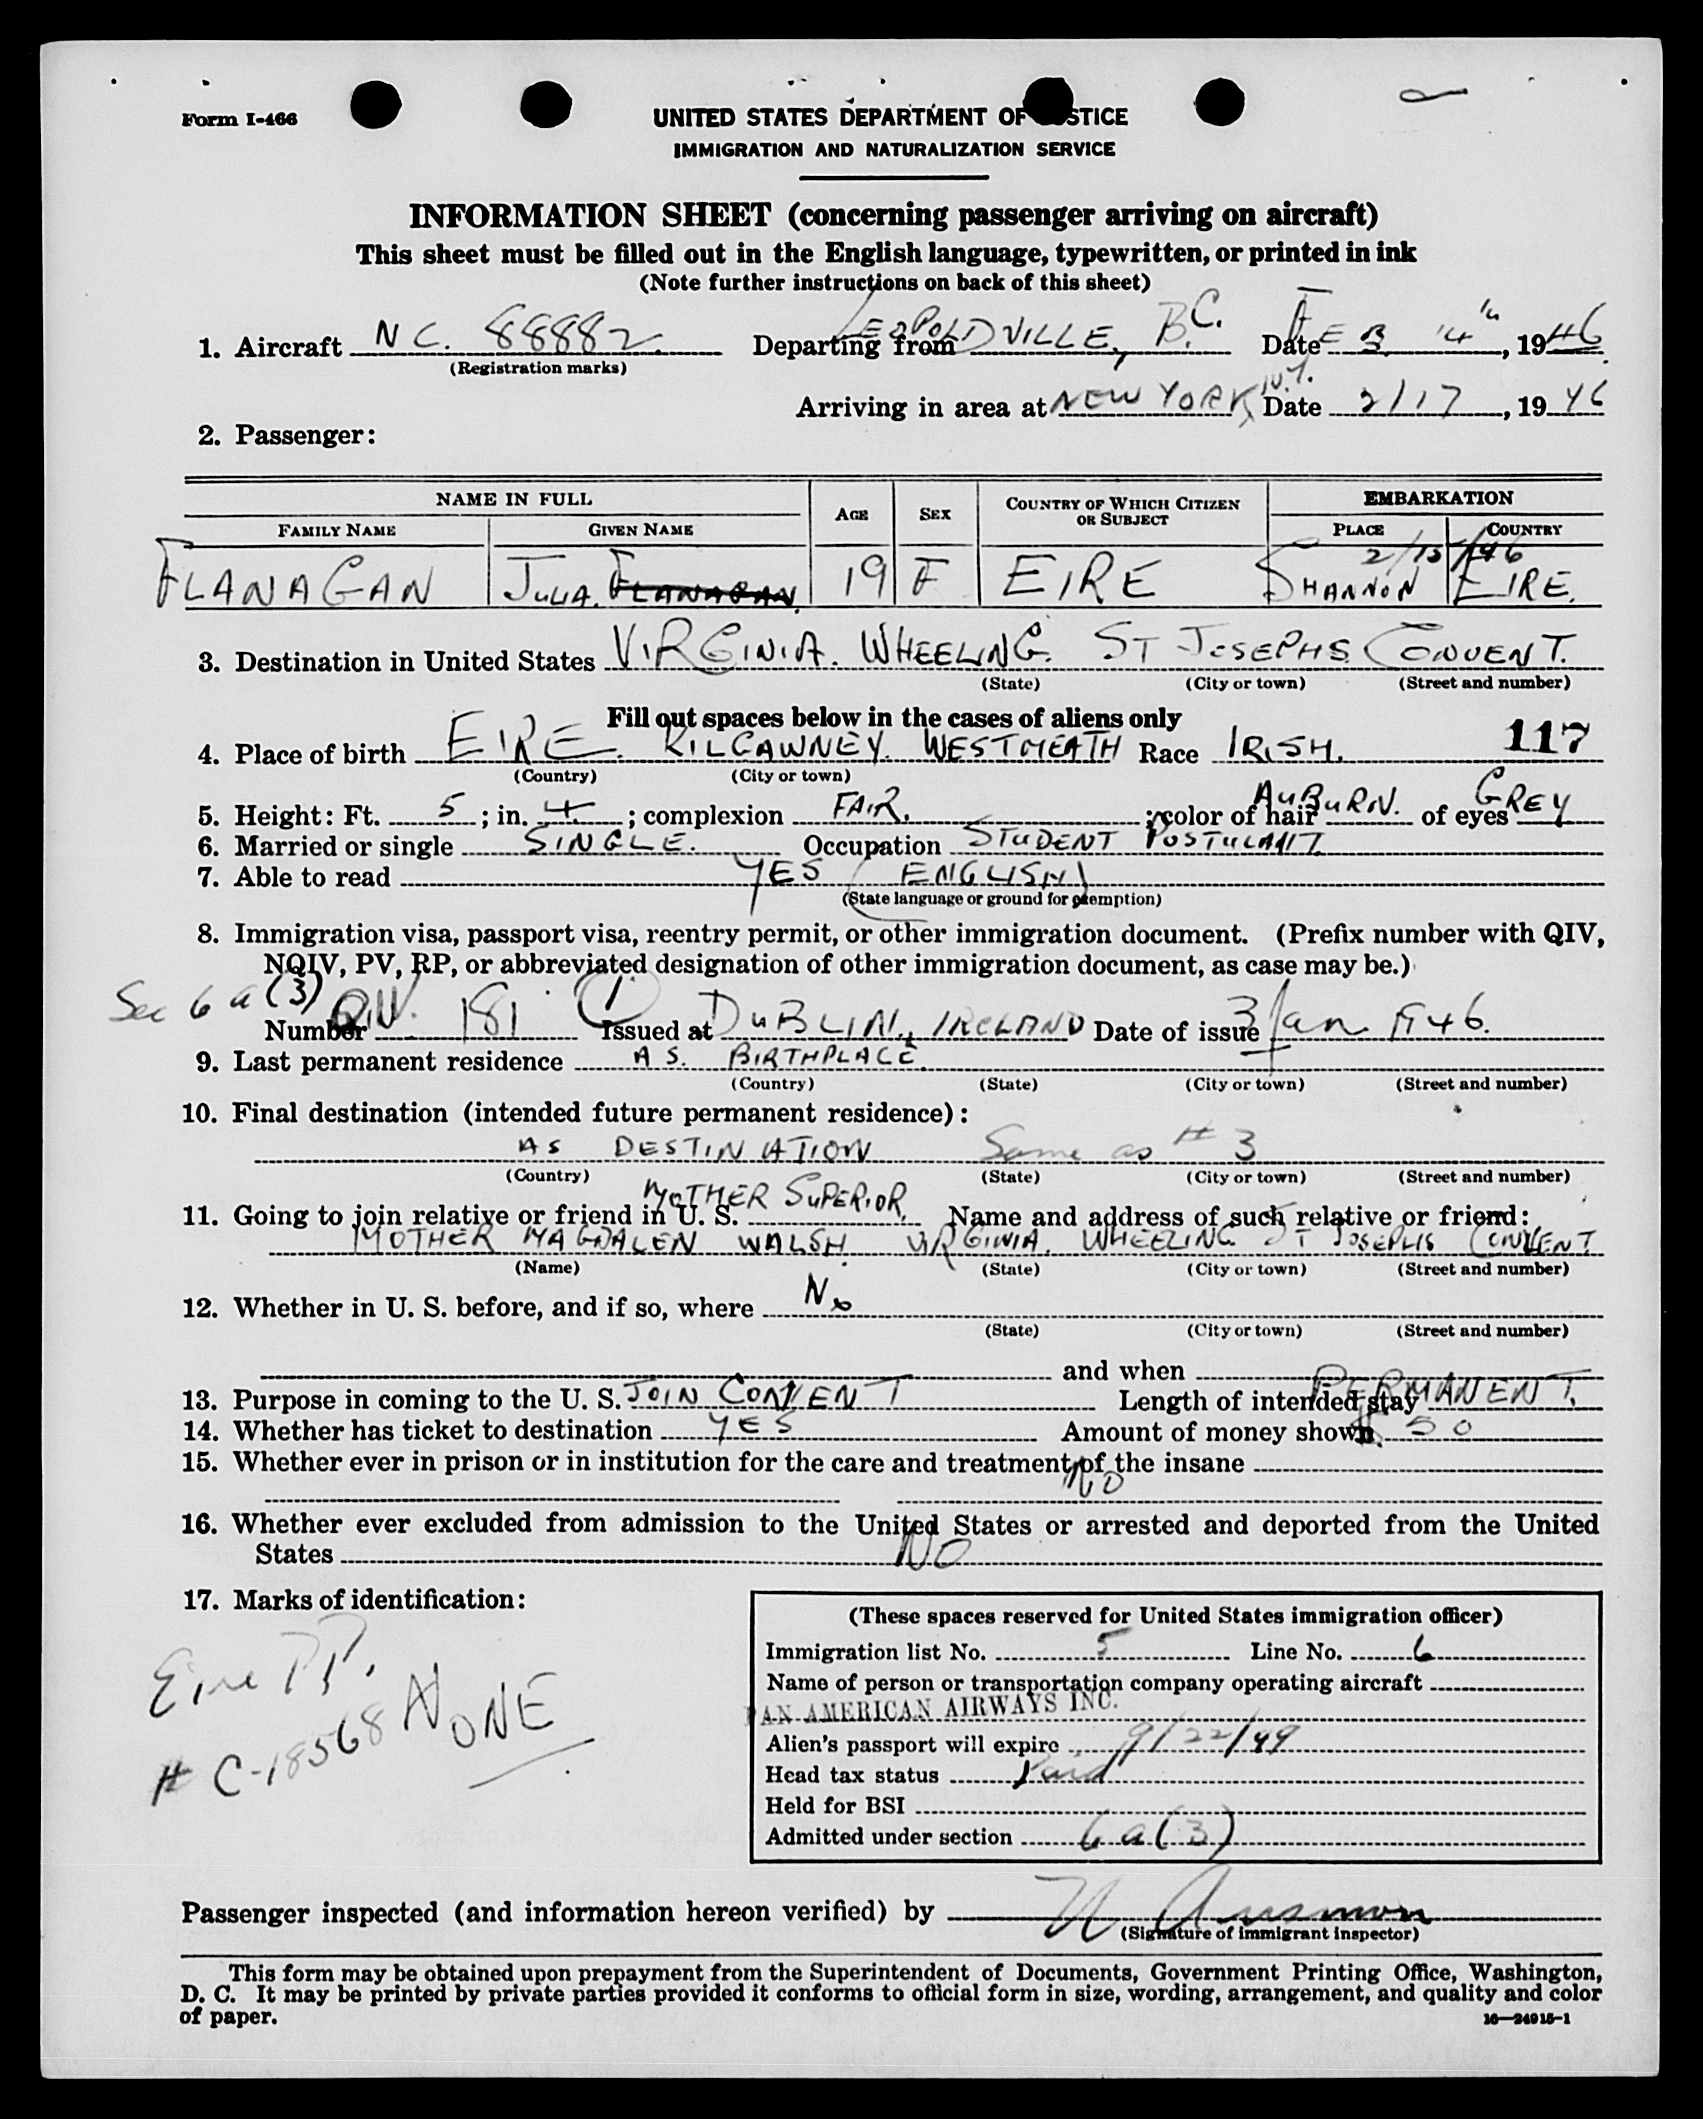 Form I-466
UNITED STATES DEPARTMENT OF JUSTICE
IMMIGRATION AND NATURALIZATION SERVICE
INFORMATION SHEET (concerning passenger arriving on aircraft)
This sheet must be filled out in the English language, typewritten, or printed in ink
(Note further instructions on back of this sheet)
1. Aircraft NC. 88882. Departing from LEOPOLDVILLE, B.C. Date FEB 14th, 1946.
(Registration marks)
Arriving in area at NEW YORK, N.Y. Date 2/17, 1946
2. Passenger:
NAME IN FULL AGE SEX COUNTRY OF WHICH CITIZEN OR SUBJECT EMBARKATION
FAMILY NAME GIVEN NAME PLACE COUNTRY
2/15/46
FLANAGAN JULIA. FLANAGAN. 19 F EIRE SHANNON EIRE.
3. Destination in United States VIRGINIA. WHEELING. ST JOSEPHS CONVENT.
(State) (City or town) (Street and number)
Fill out spaces below in the cases of aliens only
4. Place of birth EIRE. KILGAWNEY. WESTMEATH Race IRISH. 117
(Country) (City or town)
5. Height: Ft. 5; in. 4.; complexion FAIR.; color of hair AUBURN. of eyes GREY
6. Married or single SINGLE. Occupation STUDENT POSTULANT
7. Able to read YES (ENGLISH)
(State language or ground for exemption)
8. Immigration visa, passport visa, reentry permit, or other immigration document. (Prefix number with QIV,
NQIV, PV, RP, or abbreviated designation of other immigration document, as case may be.)
Sec 6 a (3)
Number QIV. 181 (1) Issued at DUBLIN, IRELAND Date of issue 3 Jan 1946.
9. Last permanent residence AS. BIRTHPLACE.
(Country) (State) (City or town) (Street and number)
10. Final destination (intended future permanent residence):
AS DESTINATION Same as # 3
(Country) (State) (City or town) (Street and number)
11. Going to join relative or friend in U. S. MOTHER SUPERIOR. Name and address of such relative or friend:
MOTHER MAGDALEN WALSH. VIRGINIA. WHEELING ST JOSEPHS CONVENT
(Name) (State) (City or town) (Street and number)
12. Whether in U. S. before, and if so, where No
(State) (City or town) (Street and number)
and when
13. Purpose in coming to the U. S. JOIN CONVENT Length of intended stay PERMANENT.
14. Whether has ticket to destination YES Amount of money shown $ 50
15. Whether ever in prison or in institution for the care and treatment of the insane
NO
16. Whether ever excluded from admission to the United States or arrested and deported from the United
States NO
17. Marks of identification:
Eire PP.
# C-18568 NONE
(These spaces reserved for United States immigration officer)
Immigration list No. 5 Line No. 6
Name of person or transportation company operating aircraft
PAN AMERICAN AIRWAYS INC.
Alien's passport will expire 9/22/49
Head tax status Paid
Held for BSI
Admitted under section 6 a (3)
Passenger inspected (and information hereon verified) by
(Signature of immigrant inspector)
This form may be obtained upon prepayment from the Superintendent of Documents, Government Printing Office, Washington,
D. C. It may be printed by private parties provided it conforms to official form in size, wording, arrangement, and quality and color
of paper.
16—24915-1